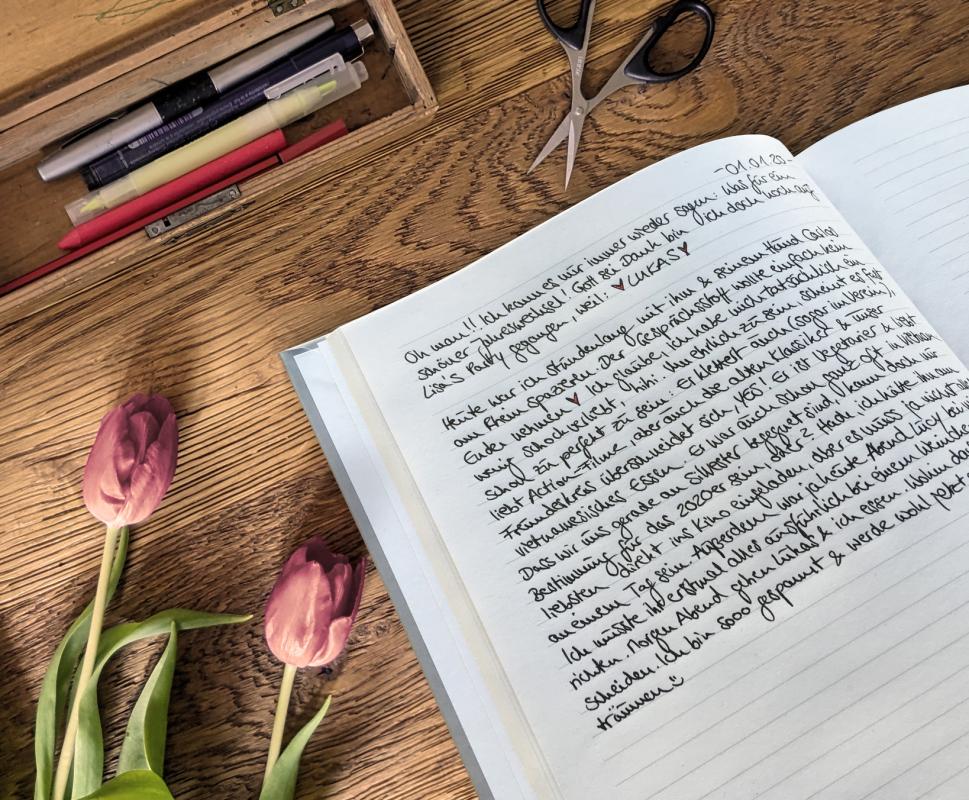 -01.01.20-
Oh man!! Ich kann es nur immer wieder sagen: Was für ein
schöner Jahreswechsel! Gott sei Dank bin ich doch noch auf
Lisas Party gegangen, weil: ♥LUKAS♥
Heute war ich stundenlang mit ihm & seinem Hund Carlos
am Rhein spazieren. Der Gesprächsstoff wollte einfach kein
Ende nehmen ♥ Ich glaube, ich habe mich tatsächlich ein
wenig schockverliebt, hihi. Um ehrlich zu sein, scheint es fast
schon zu perfekt zu sein: Er klettert auch (sogar im Verein),
liebt Action-Filme, aber auch die alten Klassiker & unser
Freundeskreis überschneidet sich, YES! Er ist Vegetarier & liebt
vietnamesisches Essen. Er war auch schon ganz oft in
Dass wir uns gerade an Silvester begegnet sind, kann doch nur
Bestimmung für das 2020er sein, oder? Heute, ich hätte ihn am
liebsten direkt ins Kino eingeladen, aber es muss ja nicht alles
an einem Tag sein. Außerdem war ja heute Abend Lucy bei
Ich musste ihr erstmal alles ausführlich bei einem
richten. Morgen Abend gehen Lukas & ich essen. Wohin
scheiden. Ich bin sooo gespannt & werde wohl jetzt
träumen